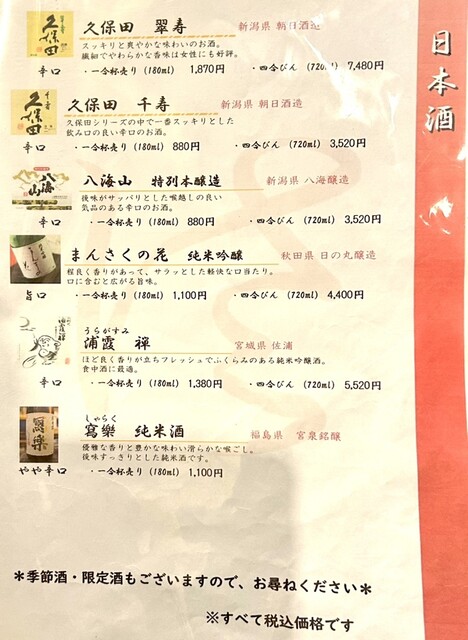 日本酒
久保田 翠寿 新潟県 朝日酒造
スッキリと爽やかな味わいのお酒。
繊細でやわらかな香味は女性にも好評。
辛口 ・一合杯売り (180ml) 1,870円 ・四合びん (720ml) 7,480円
久保田 千寿 新潟県 朝日酒造
久保田シリーズの中で一番スッキリとした
飲み口の良い辛口のお酒。
辛口 ・一合杯売り (180ml) 880円 ・四合びん (720ml) 3,520円
八海山 特別本醸造 新潟県 八海醸造
後味がサッパリとした喉越しの良い
気品のある辛口のお酒。
辛口 ・一合杯売り (180ml) 880円 ・四合びん (720ml) 3,520円
まんさくの花 純米吟醸 秋田県 日の丸醸造
程良く香りがあって、サラッとした軽快な口当たり。
口に含むと広がる旨味。
旨口 ・一合杯売り (180ml) 1,100円 ・四合びん (720ml) 4,400円
うらがすみ
浦霞 禅 宮城県 佐浦
ほど良く香りが立ちフレッシュでふくらみのある純米吟醸酒。
食中酒に最適。
辛口 ・一合杯売り (180ml) 1,380円 ・四合びん (720ml) 5,520円
しゃらく
寫樂 純米酒 福島県 宮泉銘醸
優雅な香りと豊かな味わい滑らかな喉ごし。
後味すっきりとした純米酒です。
やや辛口 ・一合杯売り (180ml) 1,100円
＊季節酒・限定酒もございますので、お尋ねください＊
※すべて税込価格です